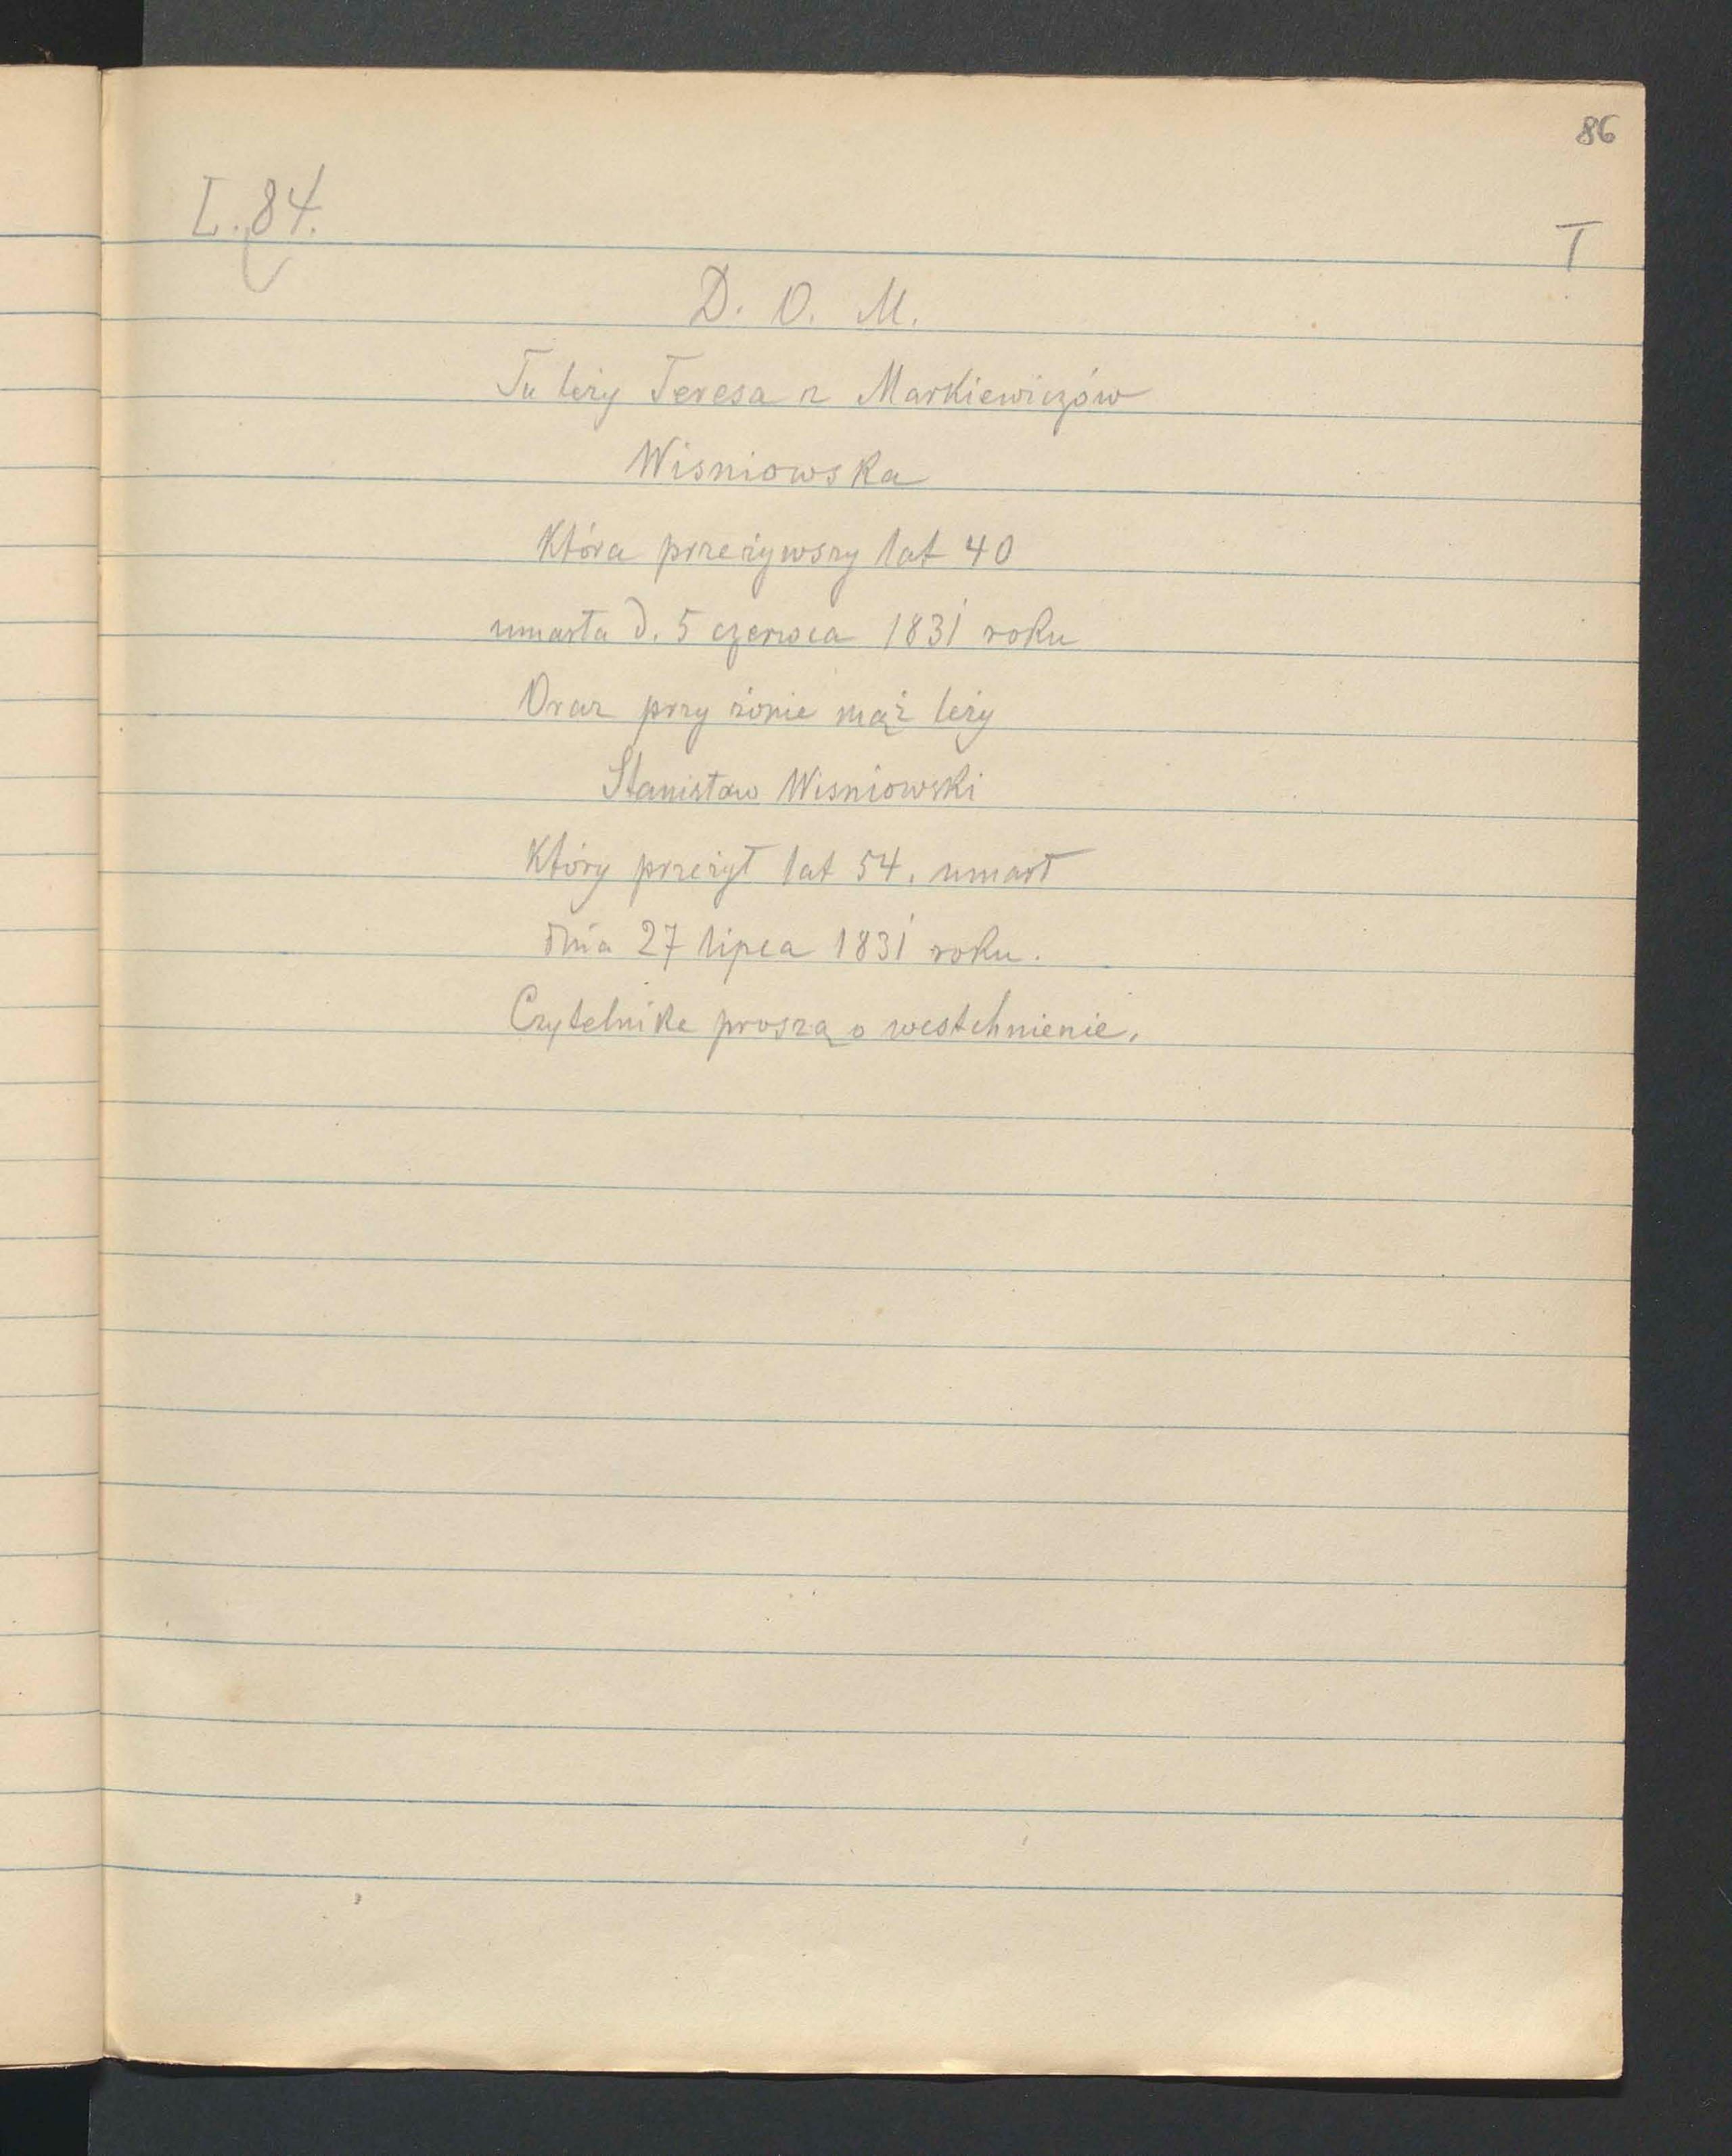 86
L. 84.
T
D. O. M.
Tu leży Teresa z Markiewiczów
Wisniowska
Która przeżywszy lat 40
umarła d. 5 czerwca 1831 roku
Oraz przy żonie mąż leży
Stanisław Wisniowski
Który przeżył lat 54. umarł
dnia 27 lipca 1831 roku.
Czytelnike proszą o westchnienie.